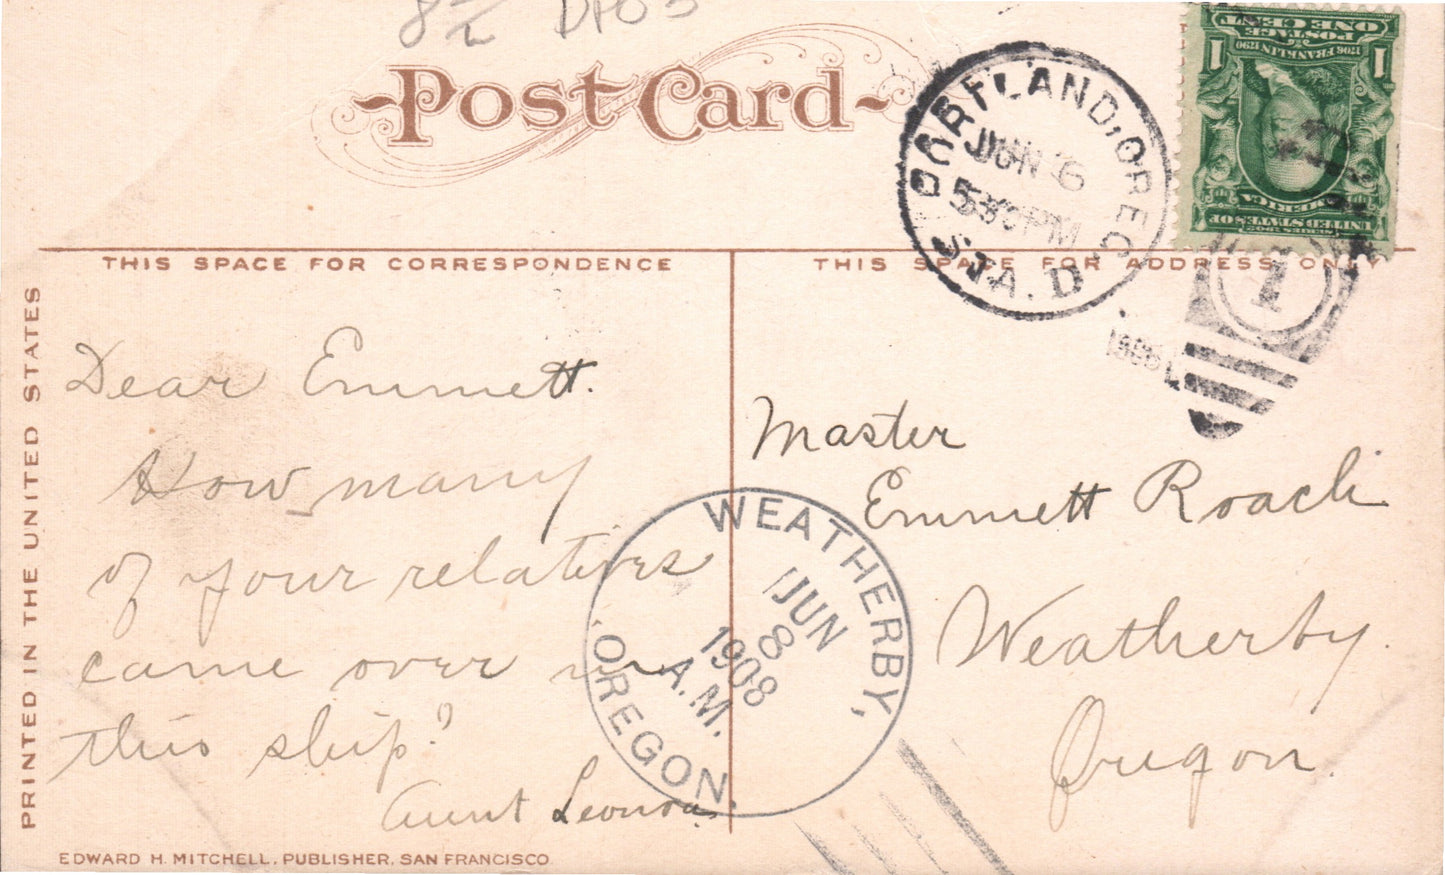 8½
Post Card
PORTLAND, OREG.
JUN 6
5 30 PM
STA. D
1
SERIES 1902
UNITED STATES OF
AMERICA
1706 FRANKLIN 1790
1 POSTAGE 1
ONE CENT
THIS SPACE FOR CORRESPONDENCE
THIS SPACE FOR ADDRESS ONLY
PRINTED IN THE UNITED STATES
Dear Emmett.
How many
of your relatives
came over in
this ship?
Aunt Leonora
Master
Emmett Roach
Weatherby
Oregon.
WEATHERBY,
JUN
8
1908
A.M.
OREGON.
EDWARD H. MITCHELL, PUBLISHER, SAN FRANCISCO